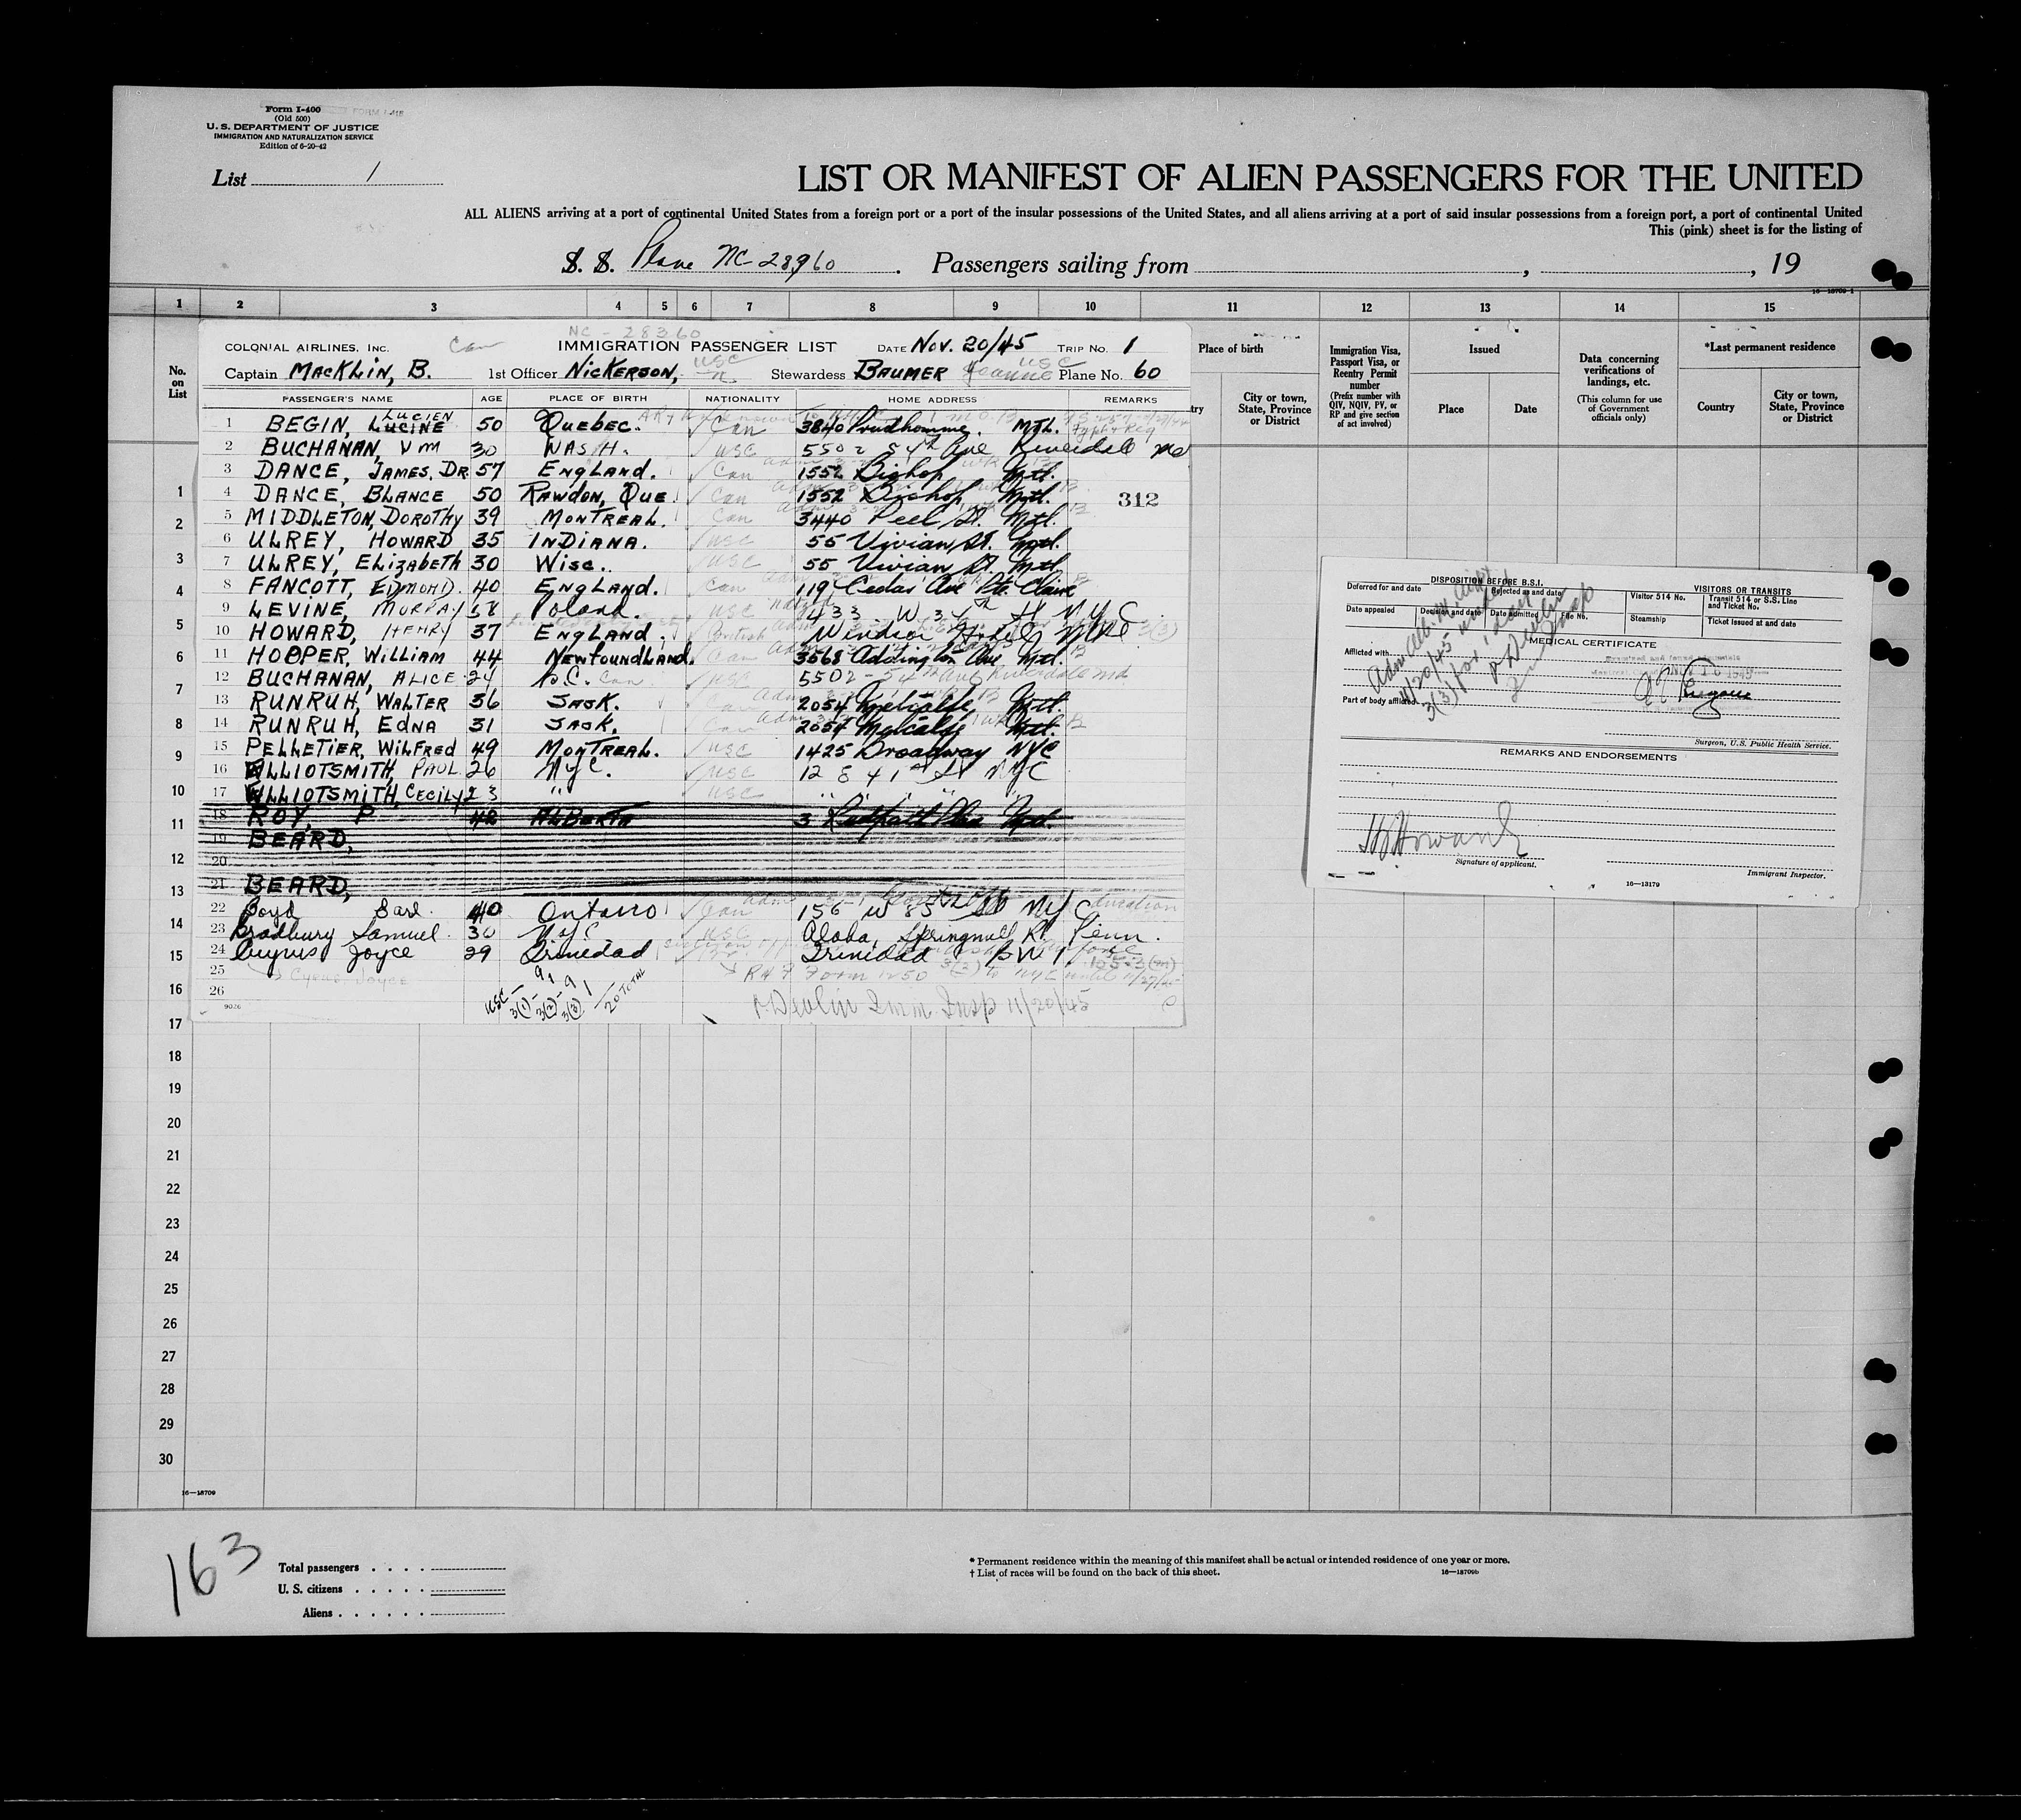 Form I-400
(Old 500)
U. S. DEPARTMENT OF JUSTICE
IMMIGRATION AND NATURALIZATION SERVICE
Edition of 6-20-42
List 1
LIST OR MANIFEST OF ALIEN PASSENGERS FOR THE UNITED
ALL ALIENS arriving at a port of continental United States from a foreign port or a port of the insular possessions of the United States, and all aliens arriving at a port of said insular possessions from a foreign port, a port of continental United
This (pink) sheet is for the listing of
S. S. Plane NC-28960 . Passengers sailing from , , 19
16-18709-1
1 2 3 4 5 6 7 8 9 10 11 12 13 14 15
No. on List
NC-28360
COLONIAL AIRLINES, INC. Can IMMIGRATION PASSENGER LIST DATE Nov. 20/45 TRIP No. 1
Captain MACKLIN, B. 1st Officer NICKERSON, USC Stewardess BAUMER Joanne USC Plane No. 60
PASSENGER'S NAME AGE PLACE OF BIRTH NATIONALITY HOME ADDRESS REMARKS
1 BEGIN, LUCIEN LUCINE 50 QUEBEC. Can 3840 Prudhomme. MTL.
2 BUCHANAN, VM 30 WASH. USC 5502 54th Ave Riverdale Md
3 DANCE, JAMES, DR. 57 ENGLAND. Can 1552 Bishop Mtl.
4 DANCE, BLANCE 50 RAWDON, QUE. Can 1552 Bishop Mtl. 312
5 MIDDLETON, DOROTHY 39 MONTREAL. Can 3440 Peel St. Mtl.
6 ULREY, HOWARD 35 INDIANA. USC 55 Vivian St. Mtl.
7 ULREY, ELIZABETH 30 WISC. USC 55 Vivian St. Mtl.
8 FANCOTT, EDMOND. 40 ENGLAND. Can 119 Cedar Ave Pte. Claire
9 LEVINE, MURRAY 58 Poland. USC 433 W 34th St NYC
10 HOWARD, HENRY 37 ENGLAND. British Windsor Hotel Mtl 3(3)
11 HOOPER, WILLIAM 44 NEWFOUNDLAND. Can 3568 Addington Ave Mtl.
12 BUCHANAN, ALICE 24 B.C. Can USC 5502 - 54th Ave Riverdale Md
13 RUNRUH, WALTER 36 SASK. Can 2054 Metcalfe, Mtl.
14 RUNRUH, EDNA 31 SASK. Can 2054 Metcalfe Mtl.
15 PELLETIER, WILFRED 49 MONTREAL. USC 1425 Broadway NYC
16 ELLIOTSMITH, PAUL 26 NYC. USC 12 E 41st St NYC
17 ELLIOTSMITH, CECILY 23 " USC " " " "
18 ROY, P 42 ALBERTA 3 Redpath Place Mtl.
19 BEARD,
20
21 BEARD,
22 Boyd Earl. 40 Ontario Can 156 W 85 St NYC
23 Bradbury Samuel. 30 NYC USC Aloha, Springmill Rd. Penn.
24 Cyrus Joyce 29 Trinidad Trinidad BWI.
25 Cyrus Joyce
26
USC - 9 3(1) - 1 3(2) - 9 3(3) 1 20 TOTAL
P. Devlin Imm. Insp 11/20/45
9026
Place of birth
City or town, State, Province or District
Immigration Visa, Passport Visa, or Reentry Permit number
(Prefix number with QIV, NQIV, PV, or RP and give section of act involved)
Issued
Place Date
Data concerning verifications of landings, etc.
(This column for use of Government officials only)
*Last permanent residence
Country
City or town, State, Province or District
DISPOSITION BEFORE B.S.I. VISITORS OR TRANSITS
Deferred for and date Rejected as and date Visitor 514 No. Transit 514 or S.S. Line and Ticket No.
Date appealed Decision and date Date admitted File No. Steamship Ticket issued at and date
MEDICAL CERTIFICATE
Afflicted with
Part of body afflicted
Surgeon, U.S. Public Health Service.
REMARKS AND ENDORSEMENTS
H Howard
Signature of applicant.
Immigrant Inspector.
16-13179
1
2
3
4
5
6
7
8
9
10
11
12
13
14
15
16
17
18
19
20
21
22
23
24
25
26
27
28
29
30
16-18709
163
Total passengers
U. S. citizens
Aliens
* Permanent residence within the meaning of this manifest shall be actual or intended residence of one year or more.
† List of races will be found on the back of this sheet.
16-18709b